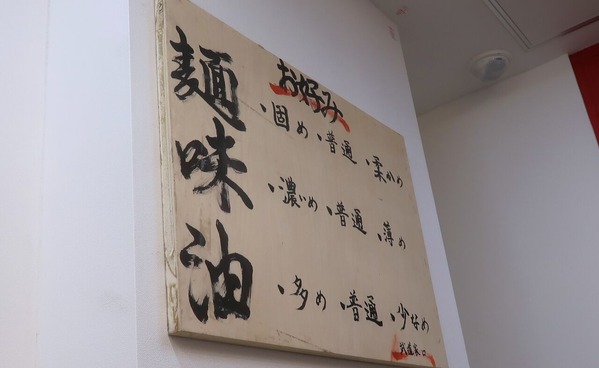 お好み
麺 ・固め ・普通 ・柔かめ
味 ・濃いめ ・普通 ・薄め
油 ・多め ・普通 ・少なめ